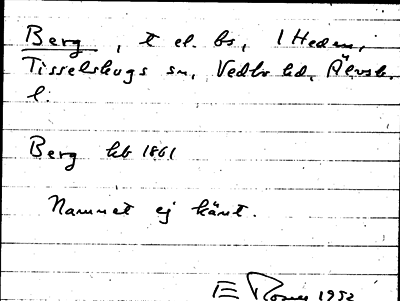 Berg, t el. bs, 1 Hedm,
Tisselskogs sn, Vedbo hd, Älvsb.
l.
Berg hb 1861
Namnet ej känt.
E 1952